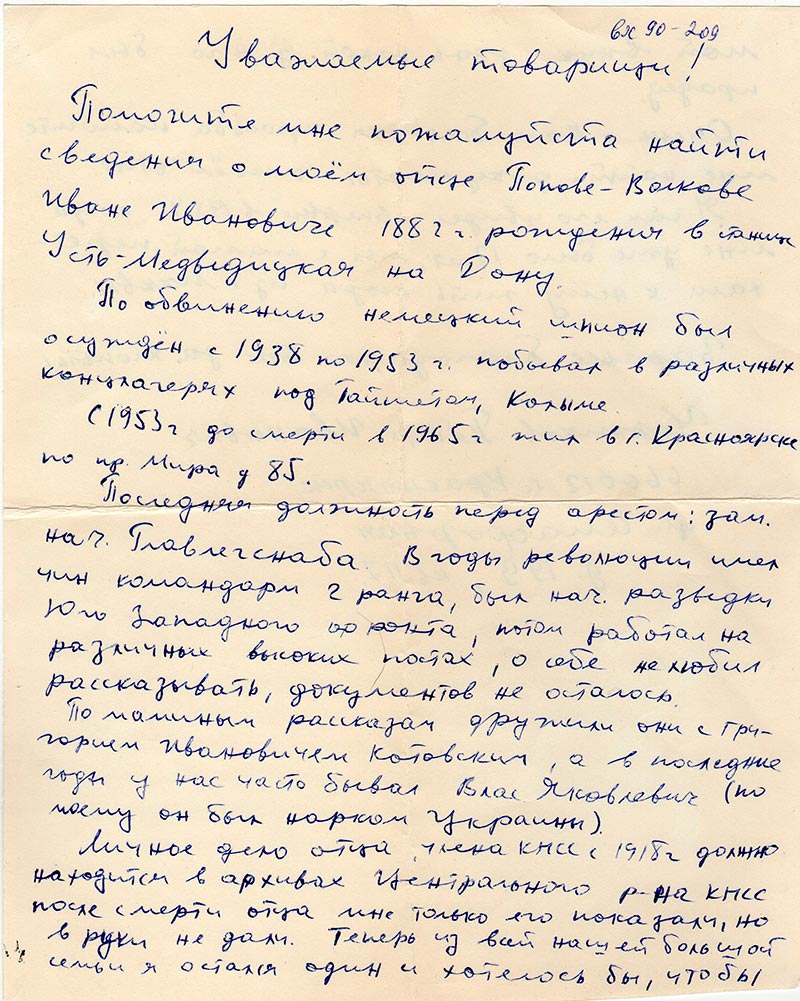 вх 90-209
Уважаемые товарищи!
Помогите мне пожалуйста найти
сведения о моём отце Попове-Волкове
Иване Ивановиче 1882 г. рождения в станице
Усть-Медведицкая на Дону.
По обвинению немецкий шпион был
осуждён с 1938 по 1953 г. побывал в различных
концлагерях под Тайшетом, Колыме.
С 1953 г до смерти в 1965 г жил в г. Красноярске
по пр. Мира д 85.
Последняя должность перед арестом: зам.
нач. Главлегснаба. В годы революции имел
чин командарм 2 ранга, был нач. разведки
Юго Западного фронта, потом работал на
различных высоких постах, о себе не любил
рассказывать, документов не осталось.
По маминым рассказам дружили они с Гри-
горием Ивановичем Котовским, а в последние
годы у нас часто бывал Влас Яковлевич (по
моему он был нарком Украины).
Личное дело отца, члена КПСС с 1918 г должно
находится в архивах Центрального р-на КПСС
после смерти отца мне только его показали, но
в руки не дали. Теперь из всей нашей большой
семьи я остался один и хотелось бы, чтобы